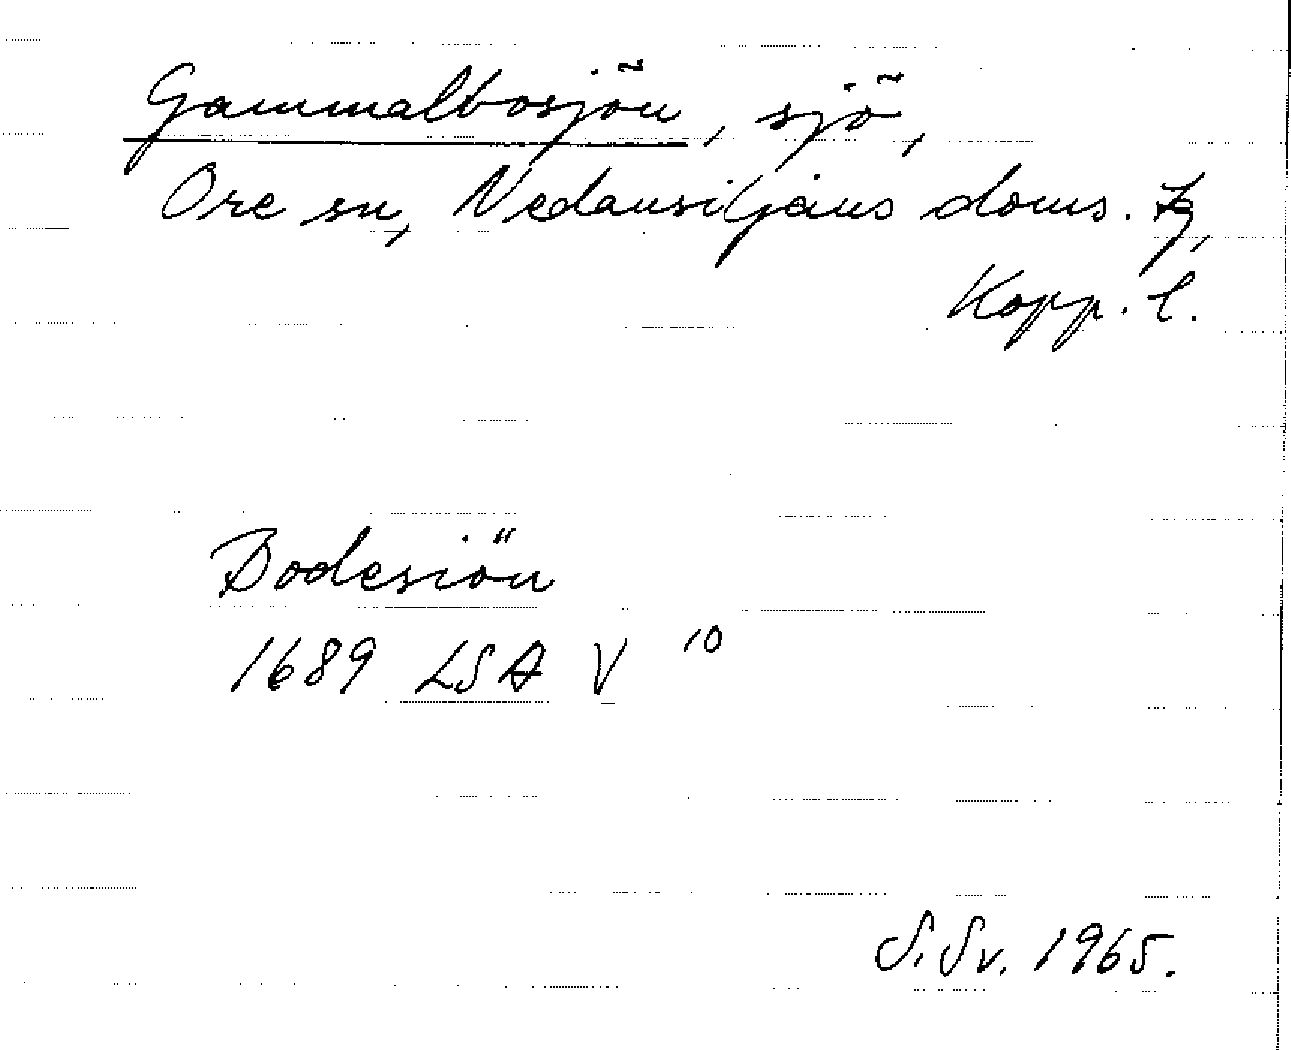 Gammalbosjön, sjö,
Ore sn, Nedansiljans doms. tg,
Kopp. l.
Bodesiön
1689 LSA V 10
S. Sv. 1965.